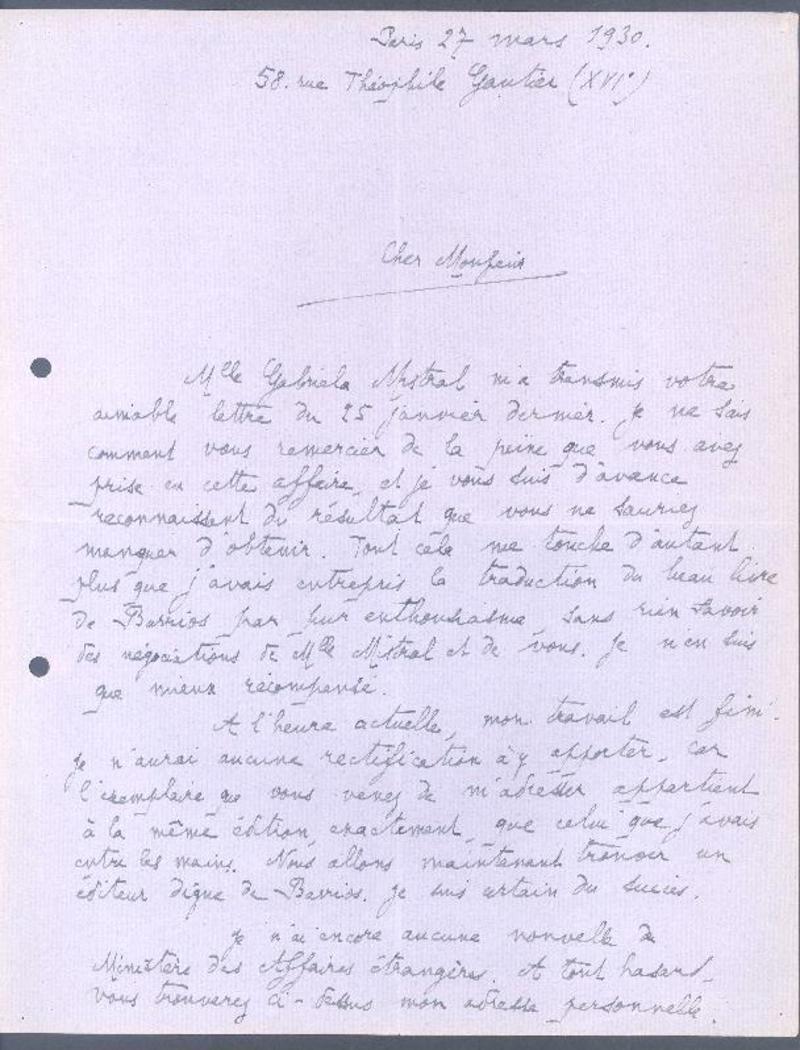 Paris 27 mars 1930.
58. rue Théophile Gautier (XVIe)
Cher Monsieur
Mlle Gabriela Mistral m'a transmis votre
aimable lettre du 25 janvier dernier. Je ne sais
comment vous remercier de la peine que vous avez
prise en cette affaire, et je vous suis d'avance
reconnaissant du résultat que vous ne sauriez
manquer d'obtenir. Tout cela me touche d'autant
plus que j'avais entrepris la traduction du beau livre
de Barrios par pur enthousiasme, sans rien savoir
des négociations de Mlle Mistral et de vous. Je n'en suis
que mieux récompensé.
A l'heure actuelle, mon travail est fini.
Je n'aurai aucune rectification à y apporter, car
l'exemplaire que vous venez de m'adresser appartient
à la même édition, exactement, que celui que j'avais
entre les mains. Nous allons maintenant trouver un
éditeur digne de Barrios. Je suis certain du succès.
Je n'ai encore aucune nouvelle du
Ministère des Affaires étrangères. A tout hasard,
vous trouverez ci-dessus mon adresse personnelle.